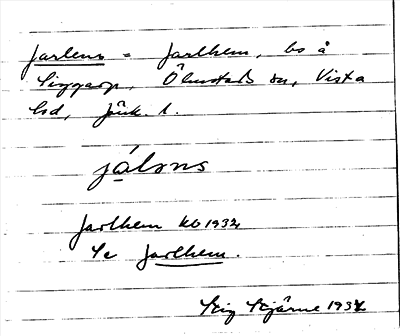 Jarlens = Jarlhem, bs å
Siggarp, Ölmstads sn, Vista
hd, Jönk. l.
jálsns
Jarlhem KB 1934
Se Jarlhem.
Stig Stjärne 1934